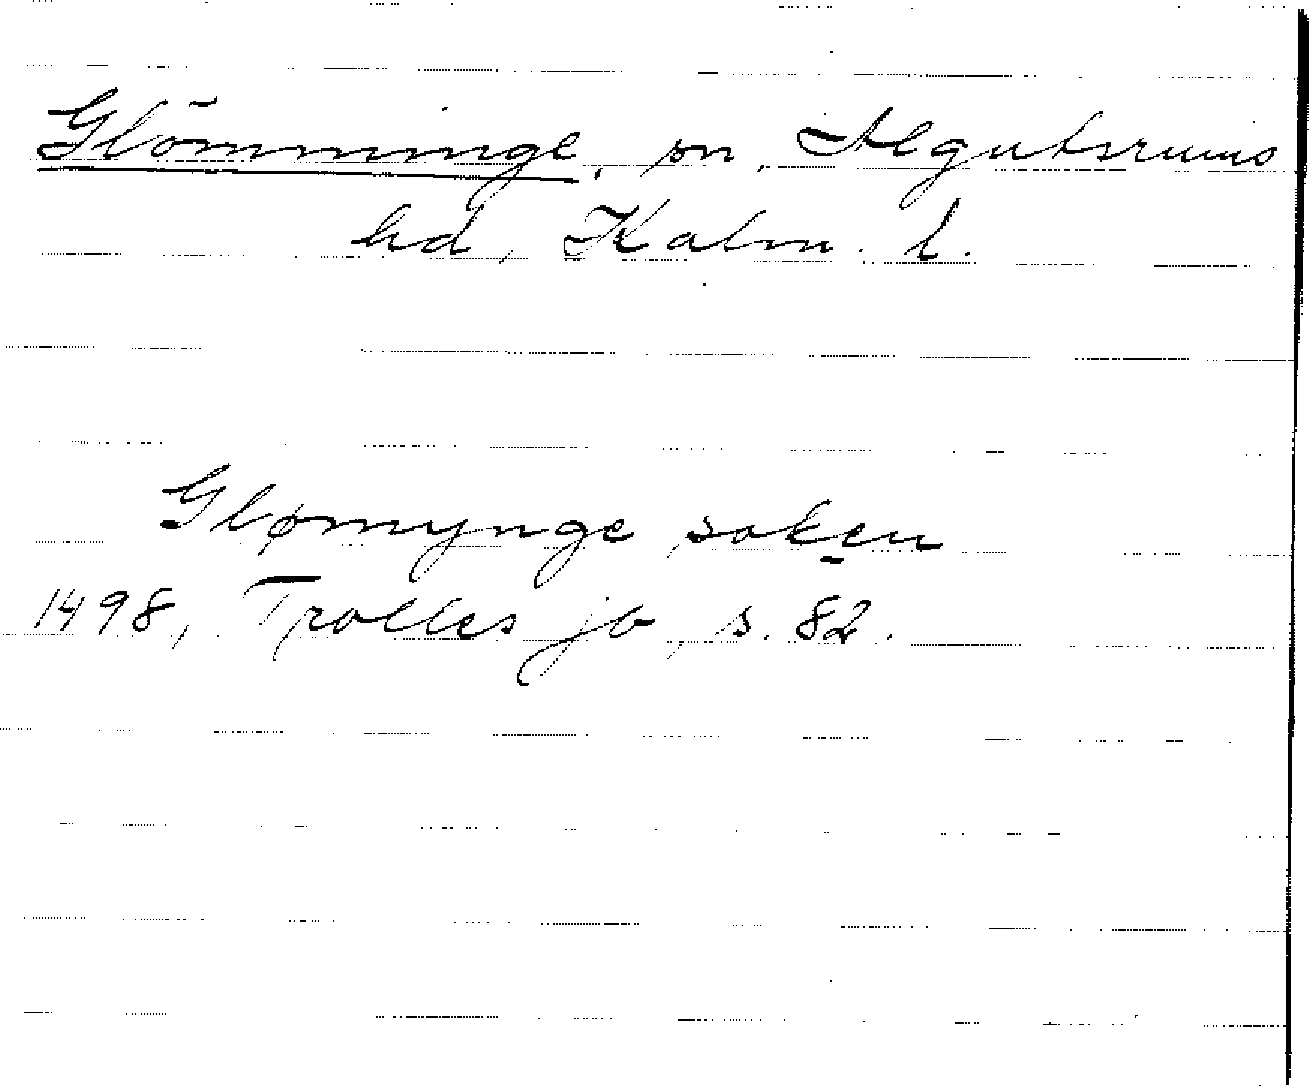 Glömminge, sn, Algutsrums
hd, Kalm. l.
Glømynge soken
1498, Trolles jb, s. 82.